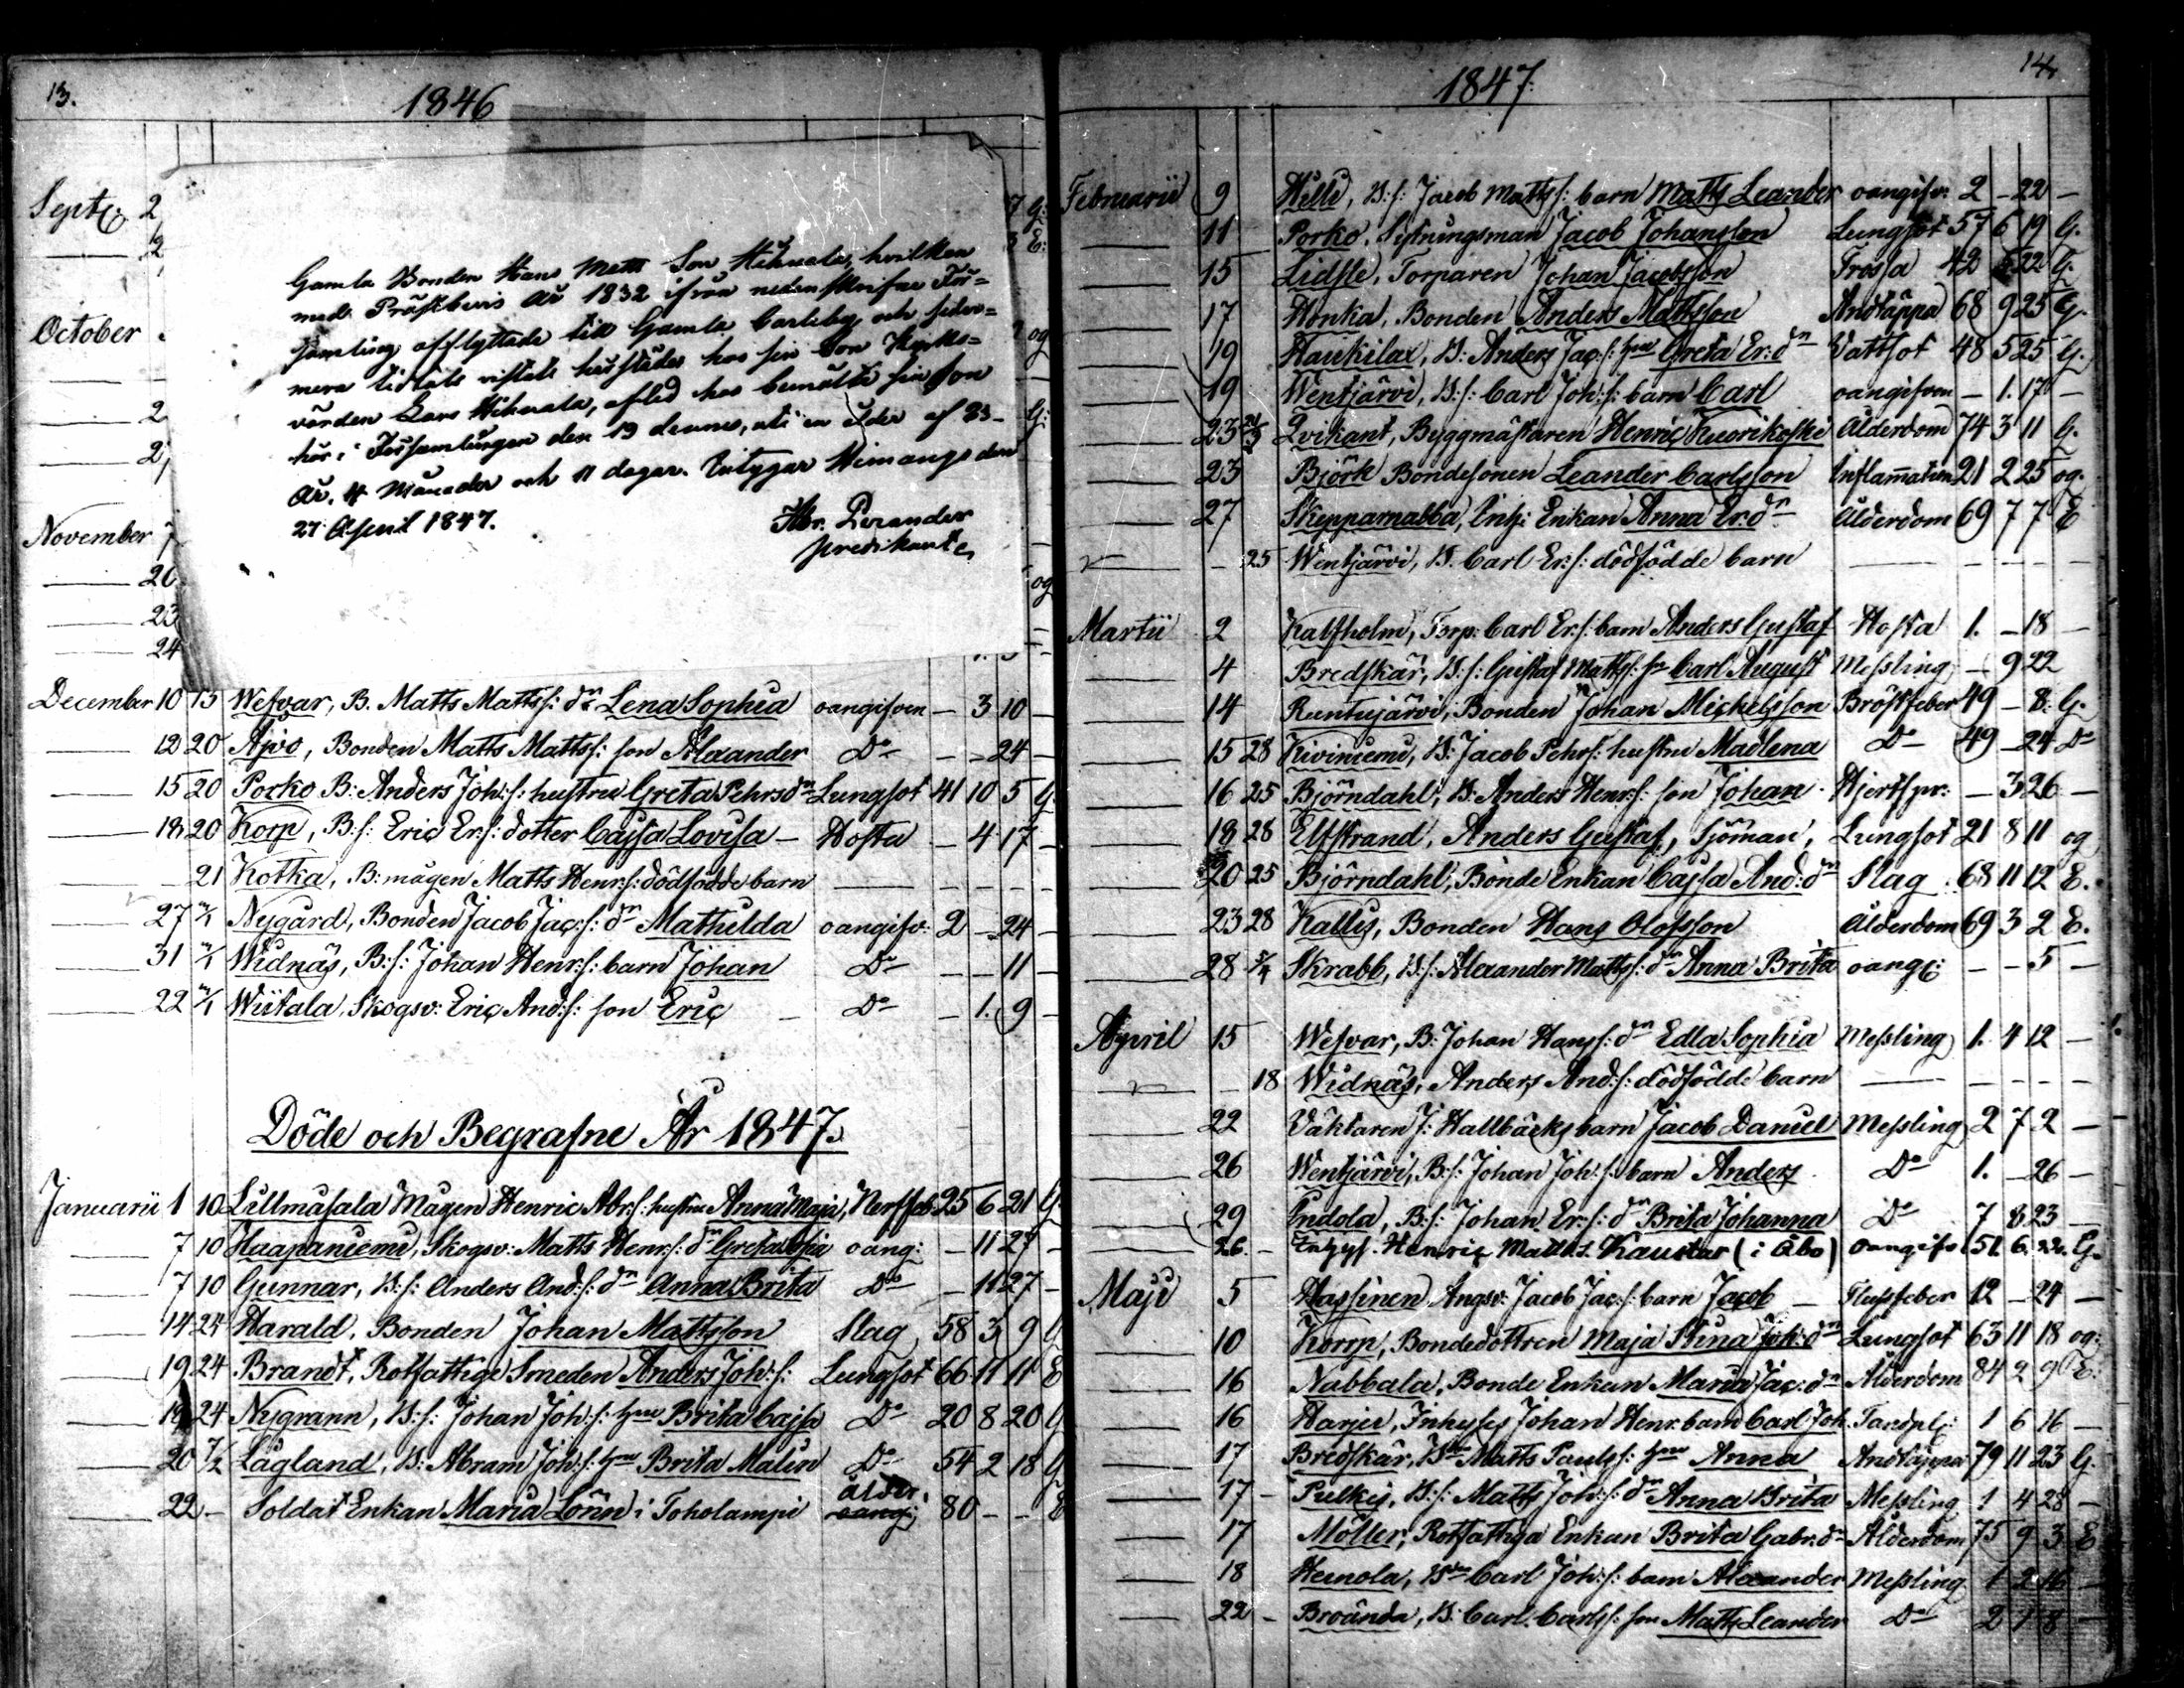 13.
1846
Septr: 2
2
October
2
2
November 7
20
23
24
7 G:
3 E:
og
G:
og
Gamla Bonden Hans Matts Son Hihnala, hvilken
med Prästbevis år 1832 ifrån nedanskrifne För-
samling afflyttade till Gamla Carleby och seder-
mera tidtals vistats härstädes hos sin Son Kyrko-
värden Lars Hihnala, afled hos bemälte sin son
här i Församlingen den 19 dennes, uti en ålder af 83
år, 4 Månader och 11 dagar. Intygar Himango den
27 April 1847.
Abr. Perander
predikant
December 10 13 Wefvar, B. Matts Matts:s: dr Lena Sophia oangifven – 3 10 –
12 20 Ajvo, Bonden Matts Matts:s: son Alexander Do – – 24 –
15 20 Porko B: Anders Joh:s: hustru Greta Pehrsdr Lungsot 41 10 5 G.
18 20 Korp, B:s: Eric Er:s: dotter Cajsa Lovisa – Hosta – 4 17 –
21 Kotka, B: mågen Matts Henr:s: dödfödde barn – – – –
27 3/1 Nygård, Bonden Jacob Jac:s: dr Mathilda oangifv: 2 – 24 –
31 3/1 Widnäs, B:s: Johan Henr:s: barn Johan Do – – 11 –
22 3/1 Wiitala, Skogsv: Eric And:s: son Eric – Do – 1. 9 –
Döde och Begrafne År 1847.
Januarii 1 10 Lillmåsala Mågen Henric Abr:s: hustru Anna Maja, Nerffeb. 25 6 21 G
7 10 Haapaniemi, Skogsv: Matts Henr:s: dr Greta oang: – 11 27 –
7 10 Gunnar, B:s: Anders And:s: dr Anna Brita Do – 11 27 –
14 24 Harald, Bonden Johan Mattsson Slag 58 3 9 G
19 24 Brandt, Rotfattige Smeden Anders Joh:s: Lungsot 66 11 11 E
19 24 Nygrann, B:s: Johan Joh:s: hru Brita Cajsa Do 20 8 20 G
20 7/2 Lågland, B: Abram Joh:s: hru Brita Malin Do 54 2 18 G
22 – Soldat Enkan Maria Lönn i Toholampi ålder. oang: 80 – – E
14.
1847.
Februarii 9 Hilli, B:s: Jacob Matts:s: barn Matts Leander oangifv. 2 – 22 –
11 Porko, Sytningsman Jacob Johansson Lungsot 57 6 19 G.
15 Lidsle, Torparen Johan Jacobsson Frossa 42 22 G.
17 Honka, Bonden Anders Mattsson Andtäppa 68 9 25 G.
19 Haukilax, B: Anders Jac:s: hru Greta Er:dr Vattsot 48 5 25 G.
19 Wentjärvi, B:s: Carl Joh:s: barn Carl oangifven – 1. 17 –
23 Qvikant, Byggmästaren Henric Kuorikoski Ålderdom 74 3 11 G.
23 Björk Bondesonen Leander Carlsson Inflamation 21 2 25 og.
27 Skepparnabba, Inh: Enkan Anna Er:dr Ålderdom 69 7 7 E
– 25 Wentjärvi, B. Carl Er:s: dödfödde barn – – – –
Martii 2 Kalfholm, Torp: Carl Er:s: barn Anders Gustaf Hosta 1. – 18 –
4 Bredskär, B:s: Gustaf Matts:s: sn Carl August Messling – 9 22
14 Runtujärvi, Bonden Johan Michelsson Bröstfeber 49 – 8. G.
15 28 Kiviniemi, B: Jacob Pehrs:s: hustru Madlena Do 49 – 24 Do
16 25 Björndahl, B: Anders Henr:s: son Johan Hjertspr: – 3 26 –
18 28 Elfstrand, Anders Gustaf, Sjöman, Lungsot 21 8 11 og
20 25 Björndahl, Bonde Enkan Cajsa And:dr Slag 68 11 12 E.
23 28 Kallis, Bonden Hans Olofsson Ålderdom 69 3 2 E.
28 5/4 Skrabb, B:s: Alexander Matts:s: dr Anna Brita oang: – – 5 –
April 15 Wefvar, B: Johan Hans:s: dr Edla Sophia Messling 1. 4 12 –
– 18 Widnäs, Anders And:s: dödfödde barn – – – –
22 Väktaren J: Hallbäcks barn Jacob Daniel Messling 2 7 2 –
26 Wentjärvi, B:s: Johan Joh:s: barn Anders Do 1. – 26 –
29 Indola, B:s: Johan Er:s: dr Brita Johanna Do 7 8 23 –
26. – Inhys. Henric Matts.s. Kaustar (i Åbo) oangifv 51 6. 22. G.
Maji 5 Hassinen Ångsv: Jacob Jac:s: barn Jacob – Flussfeber 12 – 24 –
10 Korp, Bondedottren Maja Stina Joh:dr Lungsot 63 11 18 og:
16 Nabbala, Bonde Enkan Maria Jac:dr Ålderdom 84 2 9 E:
16 Harjei, Inhyses Johan Henr. barn Carl Joh. Tandpl: 1 6 16 –
17 Bredskär, Bdn Matts Pauls:s: hru Anna Andtäppa 79 11 23 G.
17 – Pulkis, B:s: Matts Joh:s: dr Anna Brita Messling 1 4 28 –
17 Möller, Rotfattiga Enkan Brita Gabr.dr Ålderdom 75 9 3 E
18 Heinola, Bdn Carl Joh:s: barn Alexander Messling 1 2 16 –
22 – Broända, B: Carl Carls:s: son Matts Leander Do 2 1 8 –